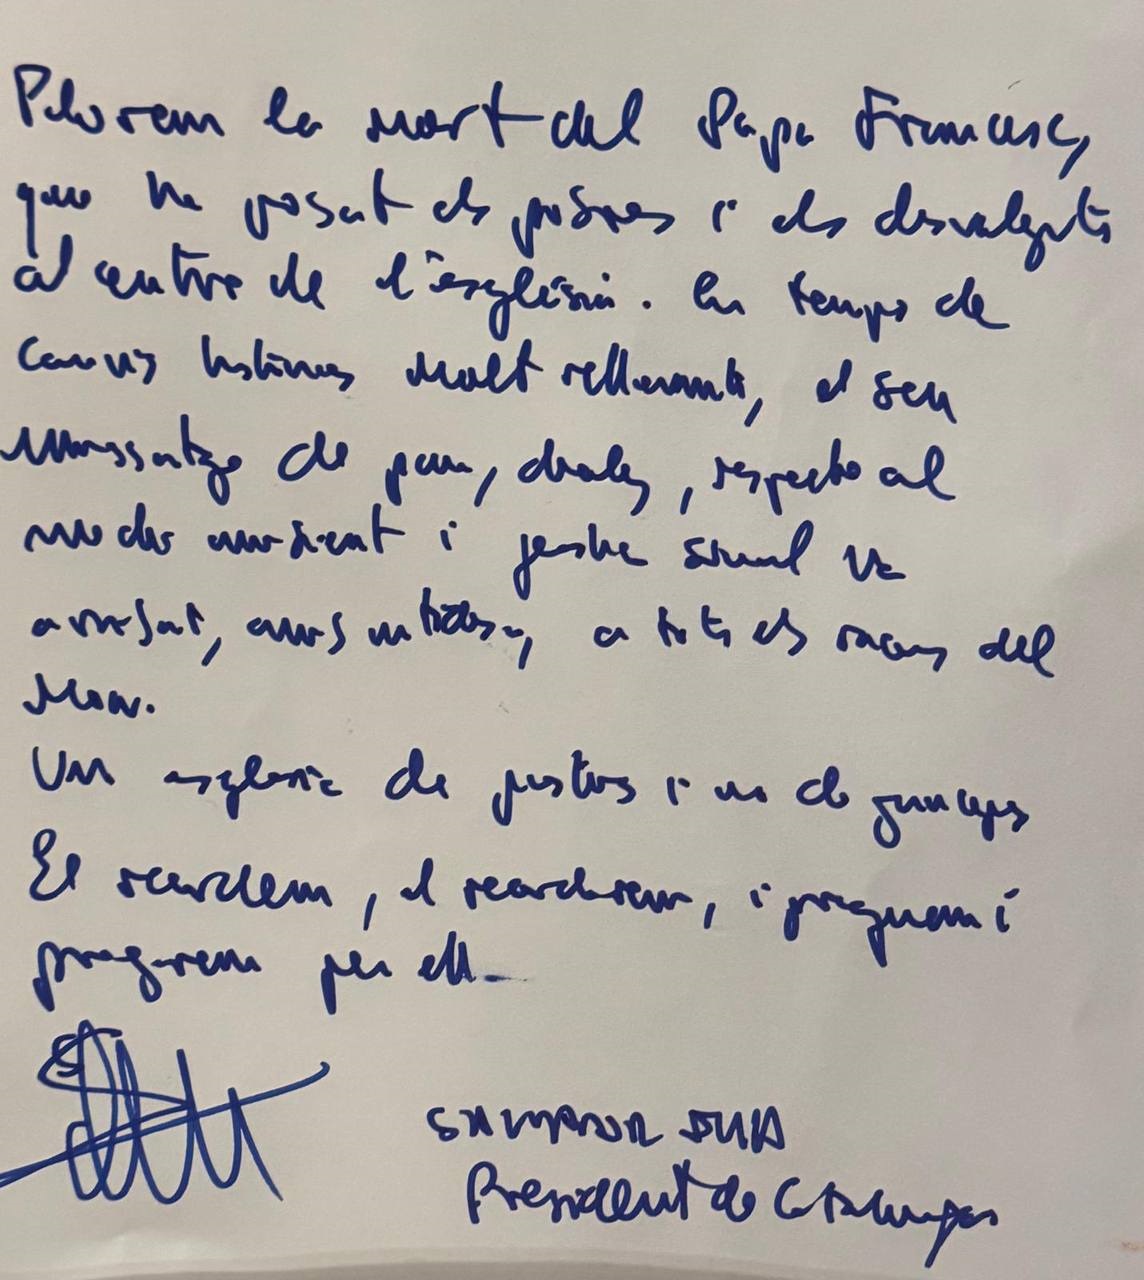 Plorem la mort del Papa Francesc,
que ha posat els pobres i els desvalguts
al centre de l'església. En temps de
canvis històrics molt rellevants, el seu
missatge de pau, diàleg, respecte al
medi ambient i justícia social va
arribar, a tots els racons del
món.
Una església de justos i no de
El recordem, el recordarem, i preguem i
pregarem per ell.
SALVADOR ILLA
President de Catalunya